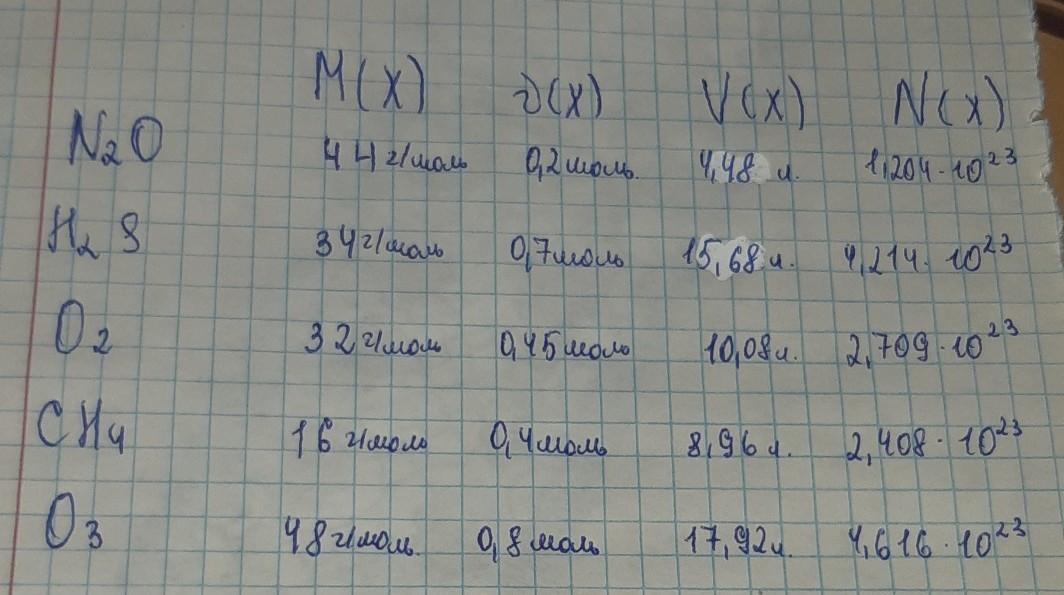 M(X) ν(X) V(X) N(X)
N₂O 44 г/моль 0,2 моль 4,48 л. 1,204·10²³
H₂S 34 г/моль 0,7 моль 15,68 л. 4,214·10²³
O₂ 32 г/моль 0,45 моль 10,08 л. 2,709·10²³
CH₄ 16 г/моль 0,4 моль 8,96 л. 2,408·10²³
O₃ 48 г/моль. 0,8 моль 17,92 л. 4,616·10²³